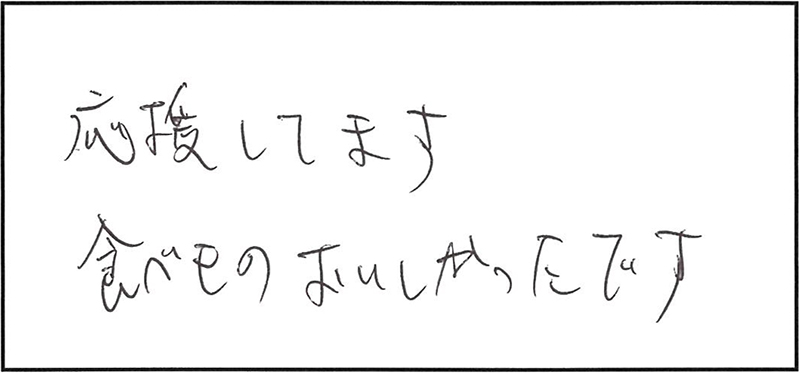 応援してます
食べものおいしかったです